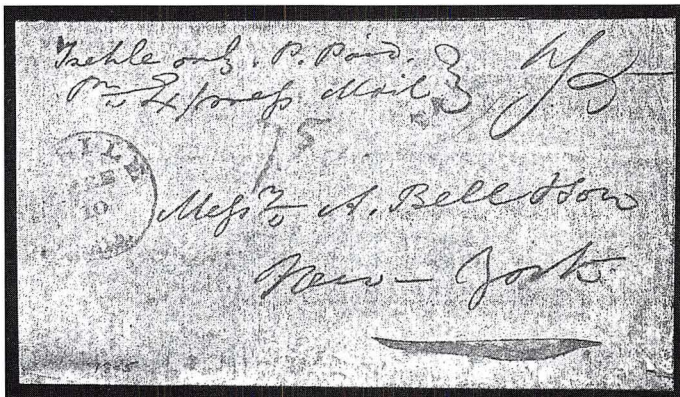 Treble only. P. Paid.
Pr. Express Mail
ILE
10
Messrs. A. Bell & Son
New-York